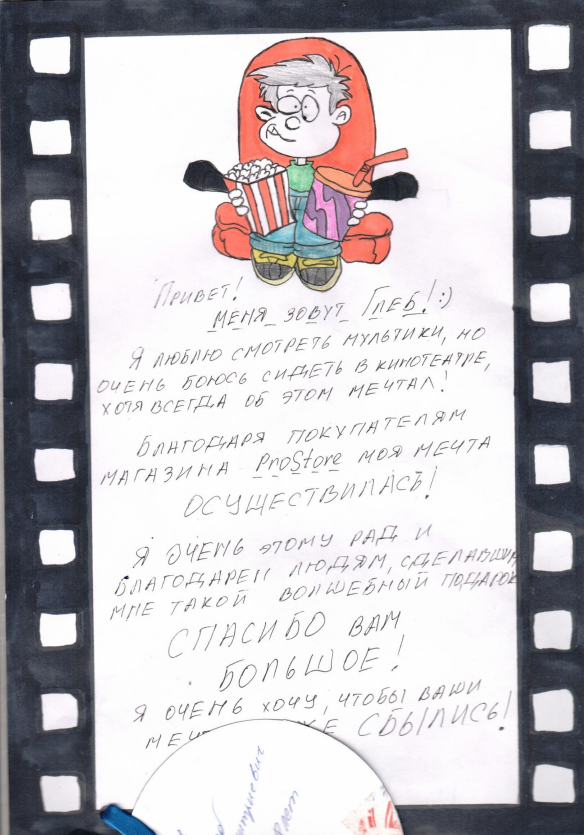 Привет!
меня зовут Глеб! :)
Я люблю смотреть мультики, но
очень боюсь сидеть в кинотеатре,
хотя всегда об этом мечтал!
Благодаря покупателям
магазина ProStore моя мечта
ОСУЩЕСТВИЛАСЬ!
Я очень этому рад и
благодарен людям, сделавшим
мне такой волшебный подарок
СПАСИБО ВАМ
БОЛЬШОЕ!
Я очень хочу, чтобы ваши
СБЫЛИСЬ!
лет